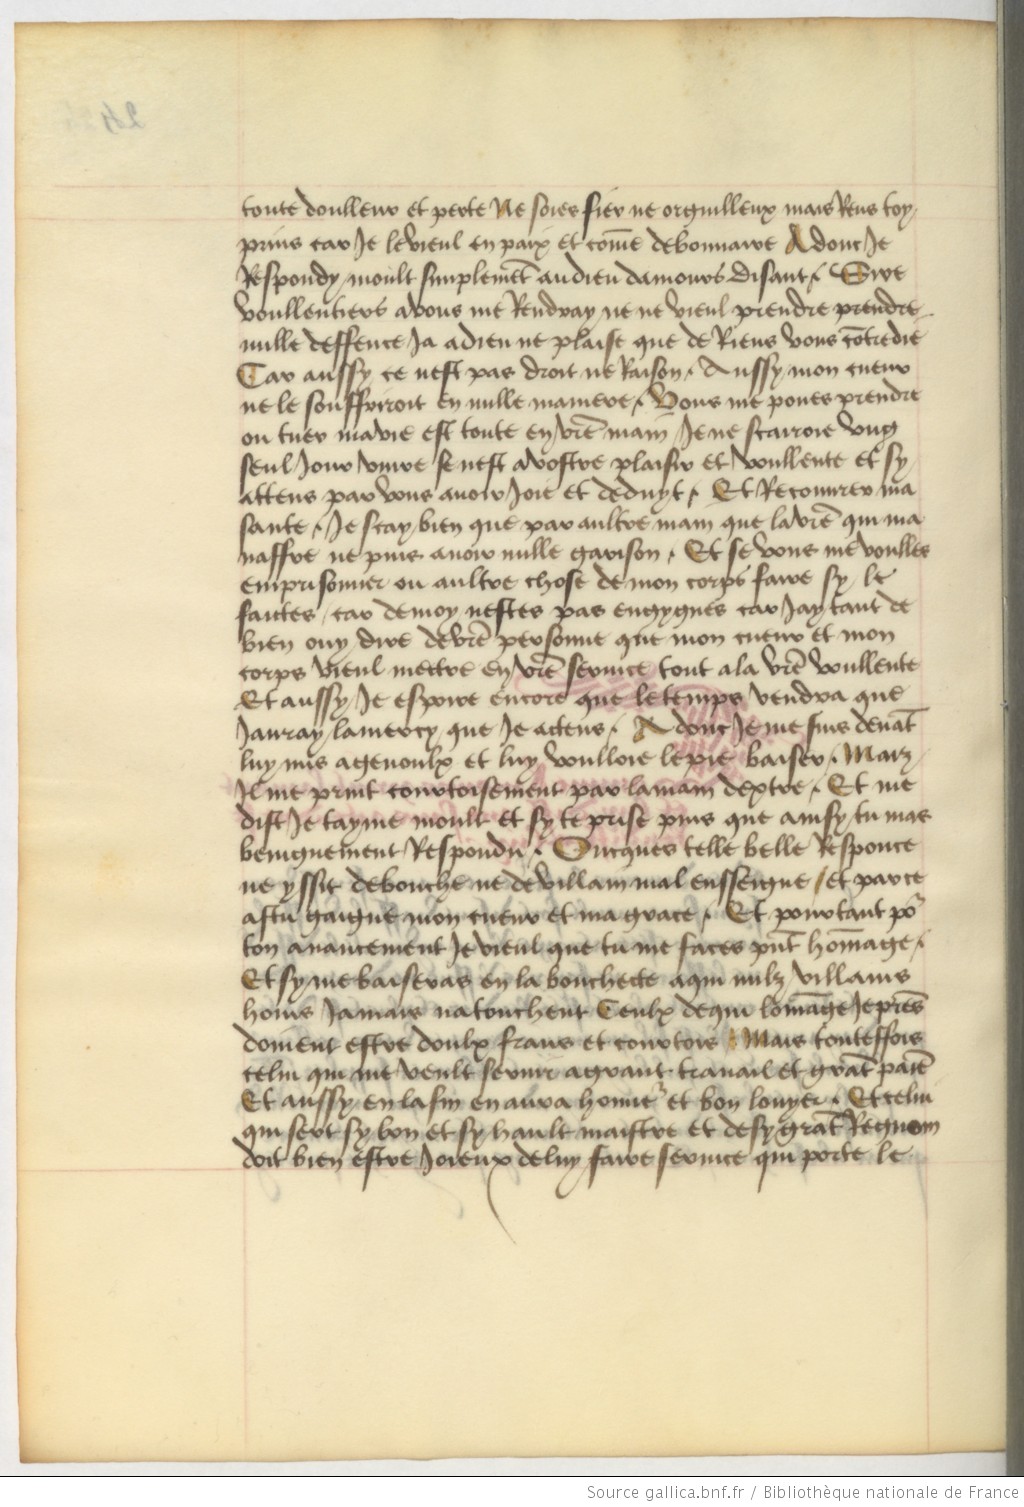 toute doulleur et perte Ne soies fier ne orguilleux mais Rens toy
prins car Je le vieul en paix et come debonnaire Adonc Je
Respondy moult simplement au dieu damours disant Sire
voullentiers a vous me Rendray ne ne vieul prendre prendre
nulle deffence Ja a dieu ne plaise que de Riens vous cotredie
Car aussy ce nest pas droit ne Raison Aussy mon cueur
ne le souffriroit en nulle maniere Vous me poues prendre
ou tuer ma vie est toute en vre main Je ne scairoie vng
seul Jour viure se nest a vostre plaisir et voullente et sy
attens par vous auoir Joie et deduyt Et Recouurer ma
sante Je scay bien que par aultre main que la vre qui ma
naffre ne puis auoir nulle garison Et se vous me voulles
emprisonner ou aultre chose de mon corps faire sy le
faictes car de moy nestes pas engygnes car Jay tant de
bien ouy dire de vre personne que mon cueur et mon
corps vieul mettre en vre seruice tout a la vre voullente
Et aussy Je espoire encore que le temps vendra que
Jauray la mercy que Je actens Adonc Je me suis deuat
luy mis agenoulx et luy voulloie le pie baiser Maiz
Il me print courtoisement par la main dextre Et me
dist Je tayme moult et sy te prise puis que ainsy tu mas
benignement Respondu Oncques telle belle Responce
ne yssit de bouche ne de villain mal enseigne et par ce
as tu gaigne mon cueur et ma grace Et pourtant po
ton auancement Je vieul que tu me faces pnt homage
Et sy me baiseras en la bouchette a qui nulz villains
homs Jamais na touchent Ceulx de qui lomage Je prens
doiuent estre doulx frans et courtois Mais touteffois
celui qui me veult seruir a grant trauail et grat paine
Et aussy en la fin en aura honneur et bon louyer Et celui
qui sert sy bon et sy hault maistre et de sy grat Regnom
doit bien estre Joieux de luy faire seruice qui porte le
Source gallica.bnf.fr / Bibliothèque nationale de France